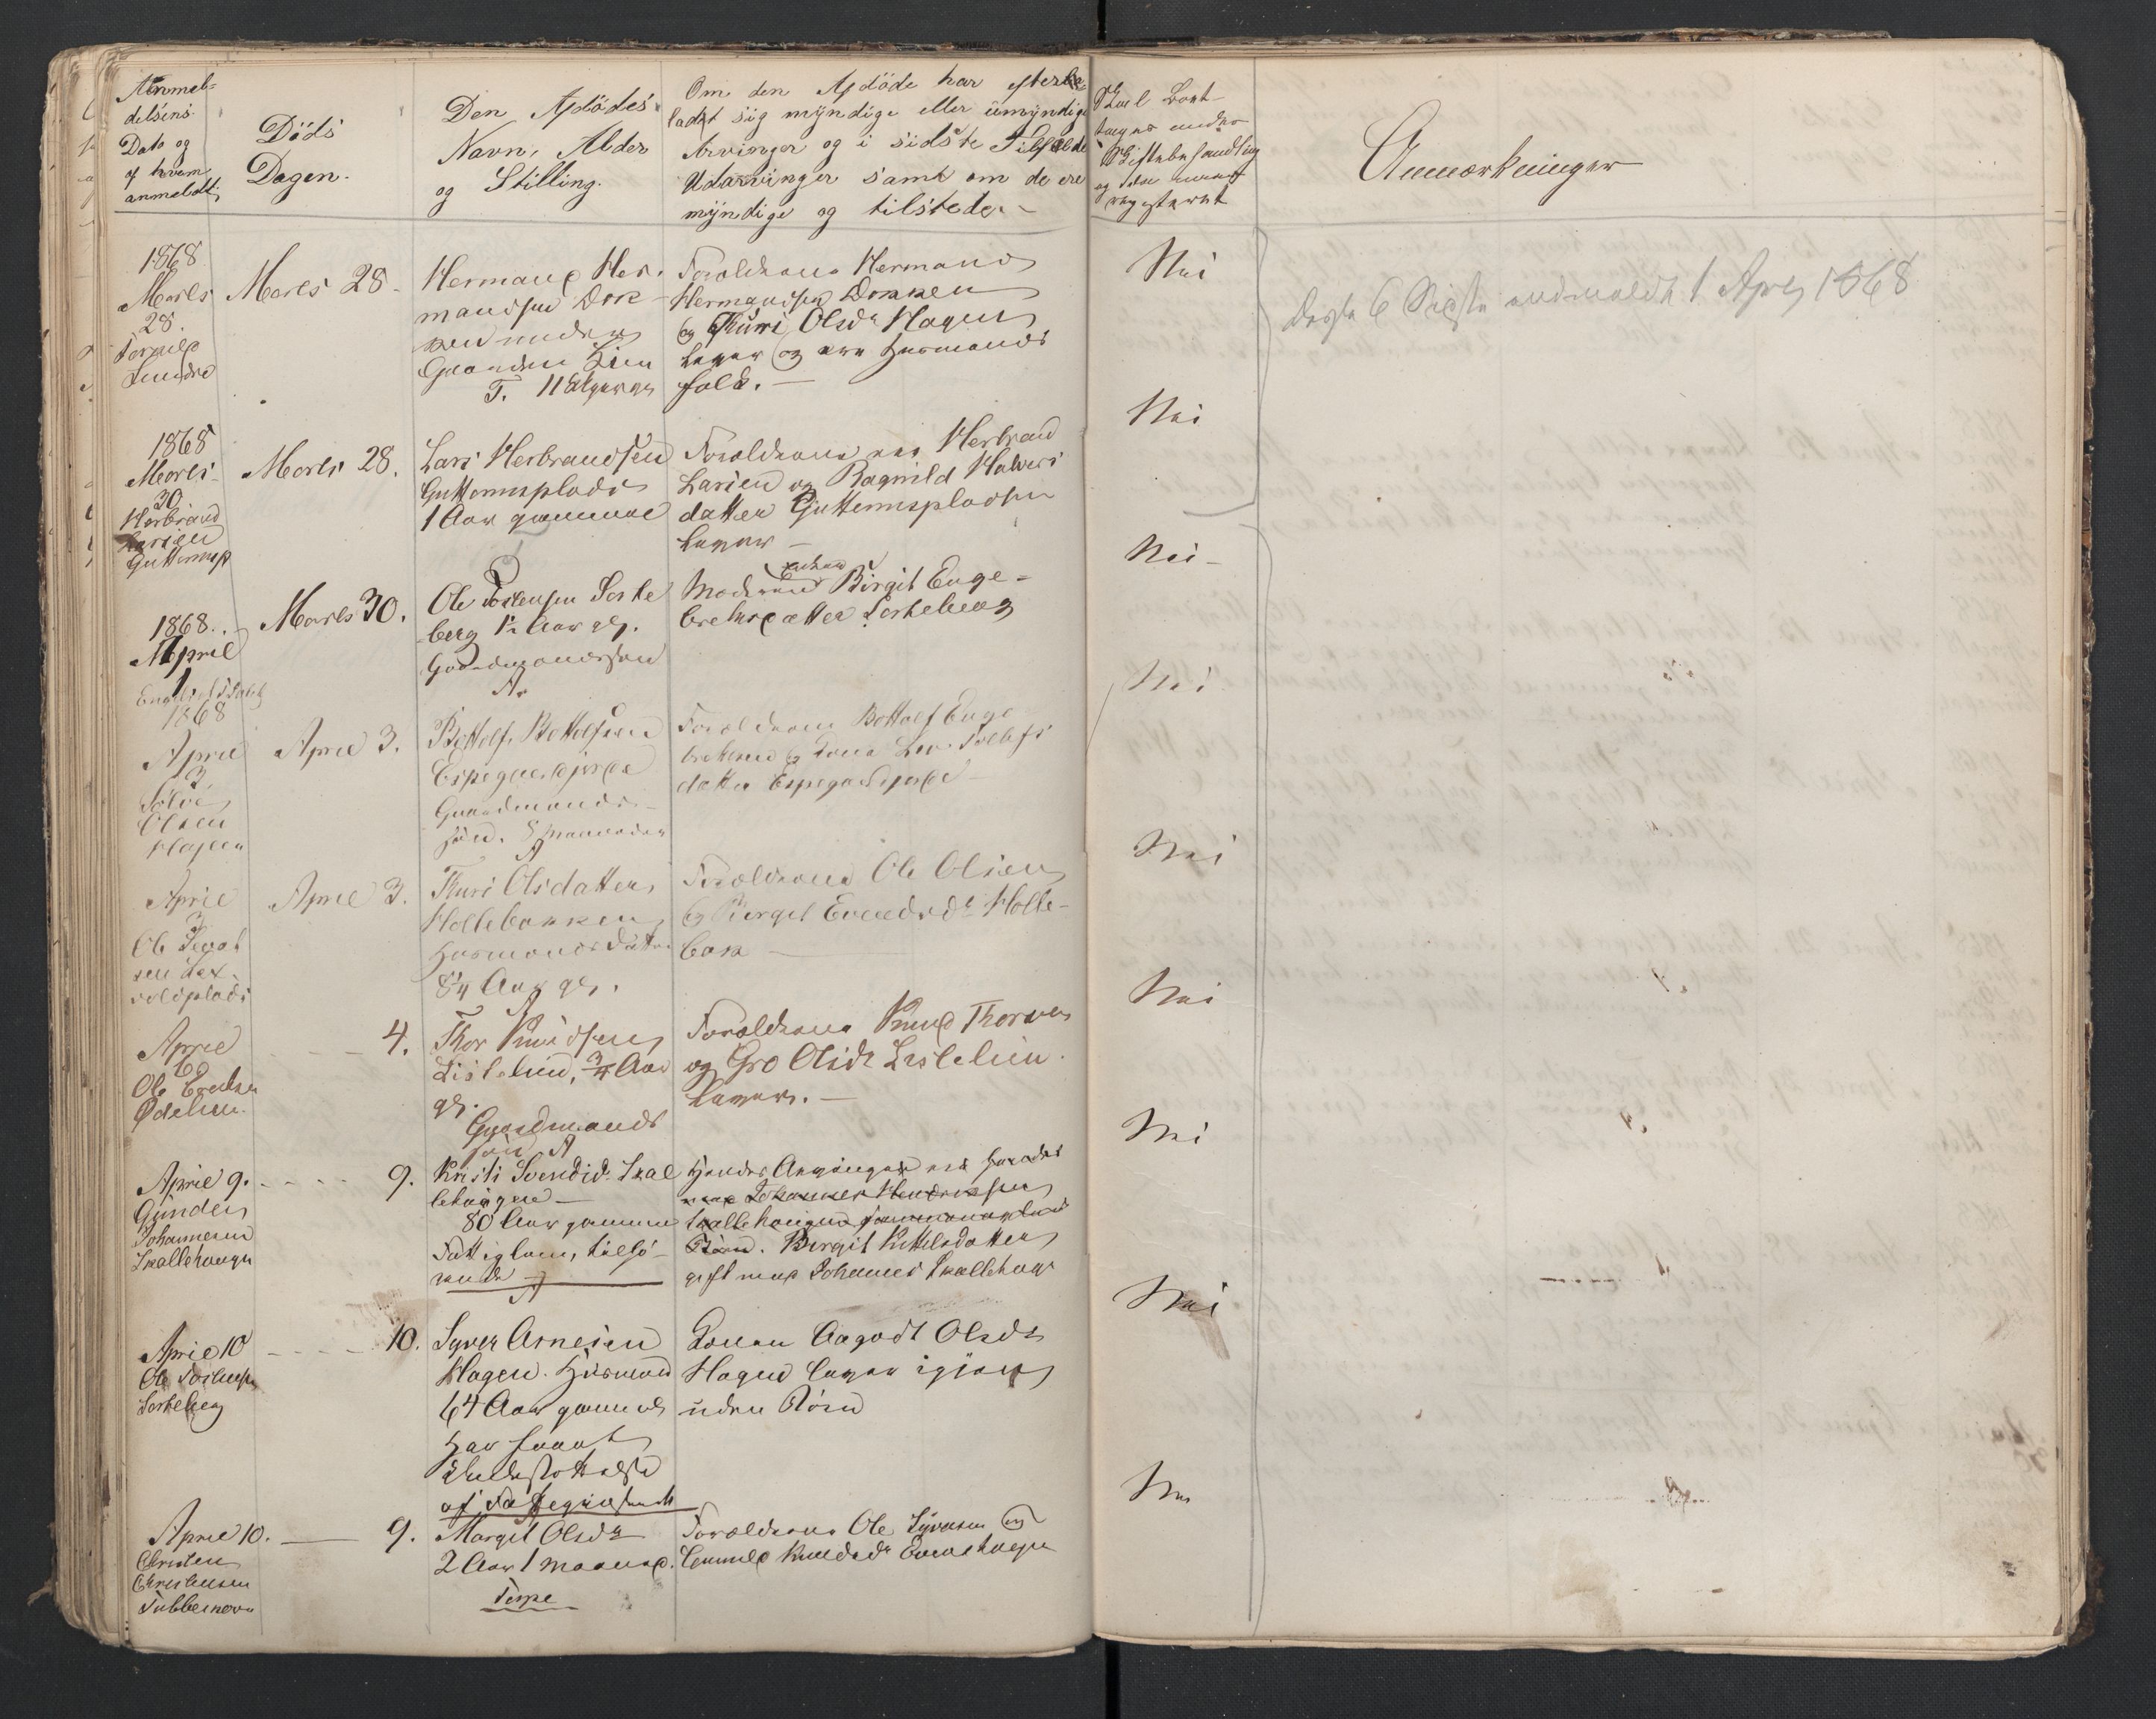 Anmel-
delsens
Dato og
af hvem
anmeldt.
Døds
Dagen.
Den Afdødes
Navn, Alder
og Stilling.
Om den Afdøde har efter
ladt sig myndige eller umyndige
Arvinger og i sidste Tilfælde
Udarvinger samt om de ere
myndige og tilstede.
Skal Boet
tages under
Skiftebehandling
og
registeret
Anmærkninger
1868
Marts
28.
Torgils
Sundre
Marts 28
Herman Her-
mandsen Dok-
ken under
Gaarden
T. 11 Uger gl
Forældrene Hermand
Hermandsen Dokken
og Thuri Olsdr Hagen
lever og ere Husmands
folk.
Nei
1 April 1868
1868
Marts
30
Herbrand
Larsen
Guttormspl
Marts 28.
Lars Herbrandsen
Guttormsplads
1 Aar gammel
Forældrene ere Herbrand
Larsen og Ragnild Halvors
datter Guttormspladsen
lever
Nei
1868.
April
1
Marts 30.
Ole Torstensen Sorte
berg ½ Aar gl.
Gaardmandssøn
A
Moderen Enken Birgit Enge-
bretsdatter Sorteberg
Nei
1868
April
3
Sølve
Olsen
Hagen
April 3.
Bottolf Bottolfsen
Espegardjorde
Gaardmands
søn. 8 Maaneder
A
Forældrene Bottolf Enge
bretsen og Kone Liv Tollefs
datter Espegardjorde
Nei
April
3
Ole
April 3.
Thuri Olsdatter
Hollebakken
Husmands Datter
8¼ Aar gl.
A
Forældrene Ole Olsen
og Birgit Evendsdr Holle-
bak
Nei
April
6
Ole Endresen
Ødelien
4.
Thor Knudsen
Listelien, ¾ Aar
gl.
Gaardmands
søn A
Forældrene Knud Thorsen
og Gro Olsdr Listelien
lever.
Nei
April 9.
Gunder
Johannesen
Skallehaugen
9.
Kristi Svendsdr Skal
lehaugen
80 Aar gammel
Fattiglem, tilhø
rende
A
Hendes Arvinger ere hendes
Johannes Hendriksen
Skallehaugen
Børn. Birgit Kittelsdatter
gift med Johannes Skallehaug
Nei
April 10
Ole Torstensen
Sorteberg
10.
Syver Arnesen
Hagen. Husmand
64 Aar gammel
Har faaet
Understøttelse
af Fattigvæsenet
A
Konen Aagodt Olsdr
Hagen lever igjen
uden Børn
Nei
April 10.
Christen
Christensen
Tubbernev
9.
Margit Olsdr
2 Aar 1 Maaned.
Torpe
Forældrene Ole Syversen og
Gunnild Knudsdr Evenshagen
Nei